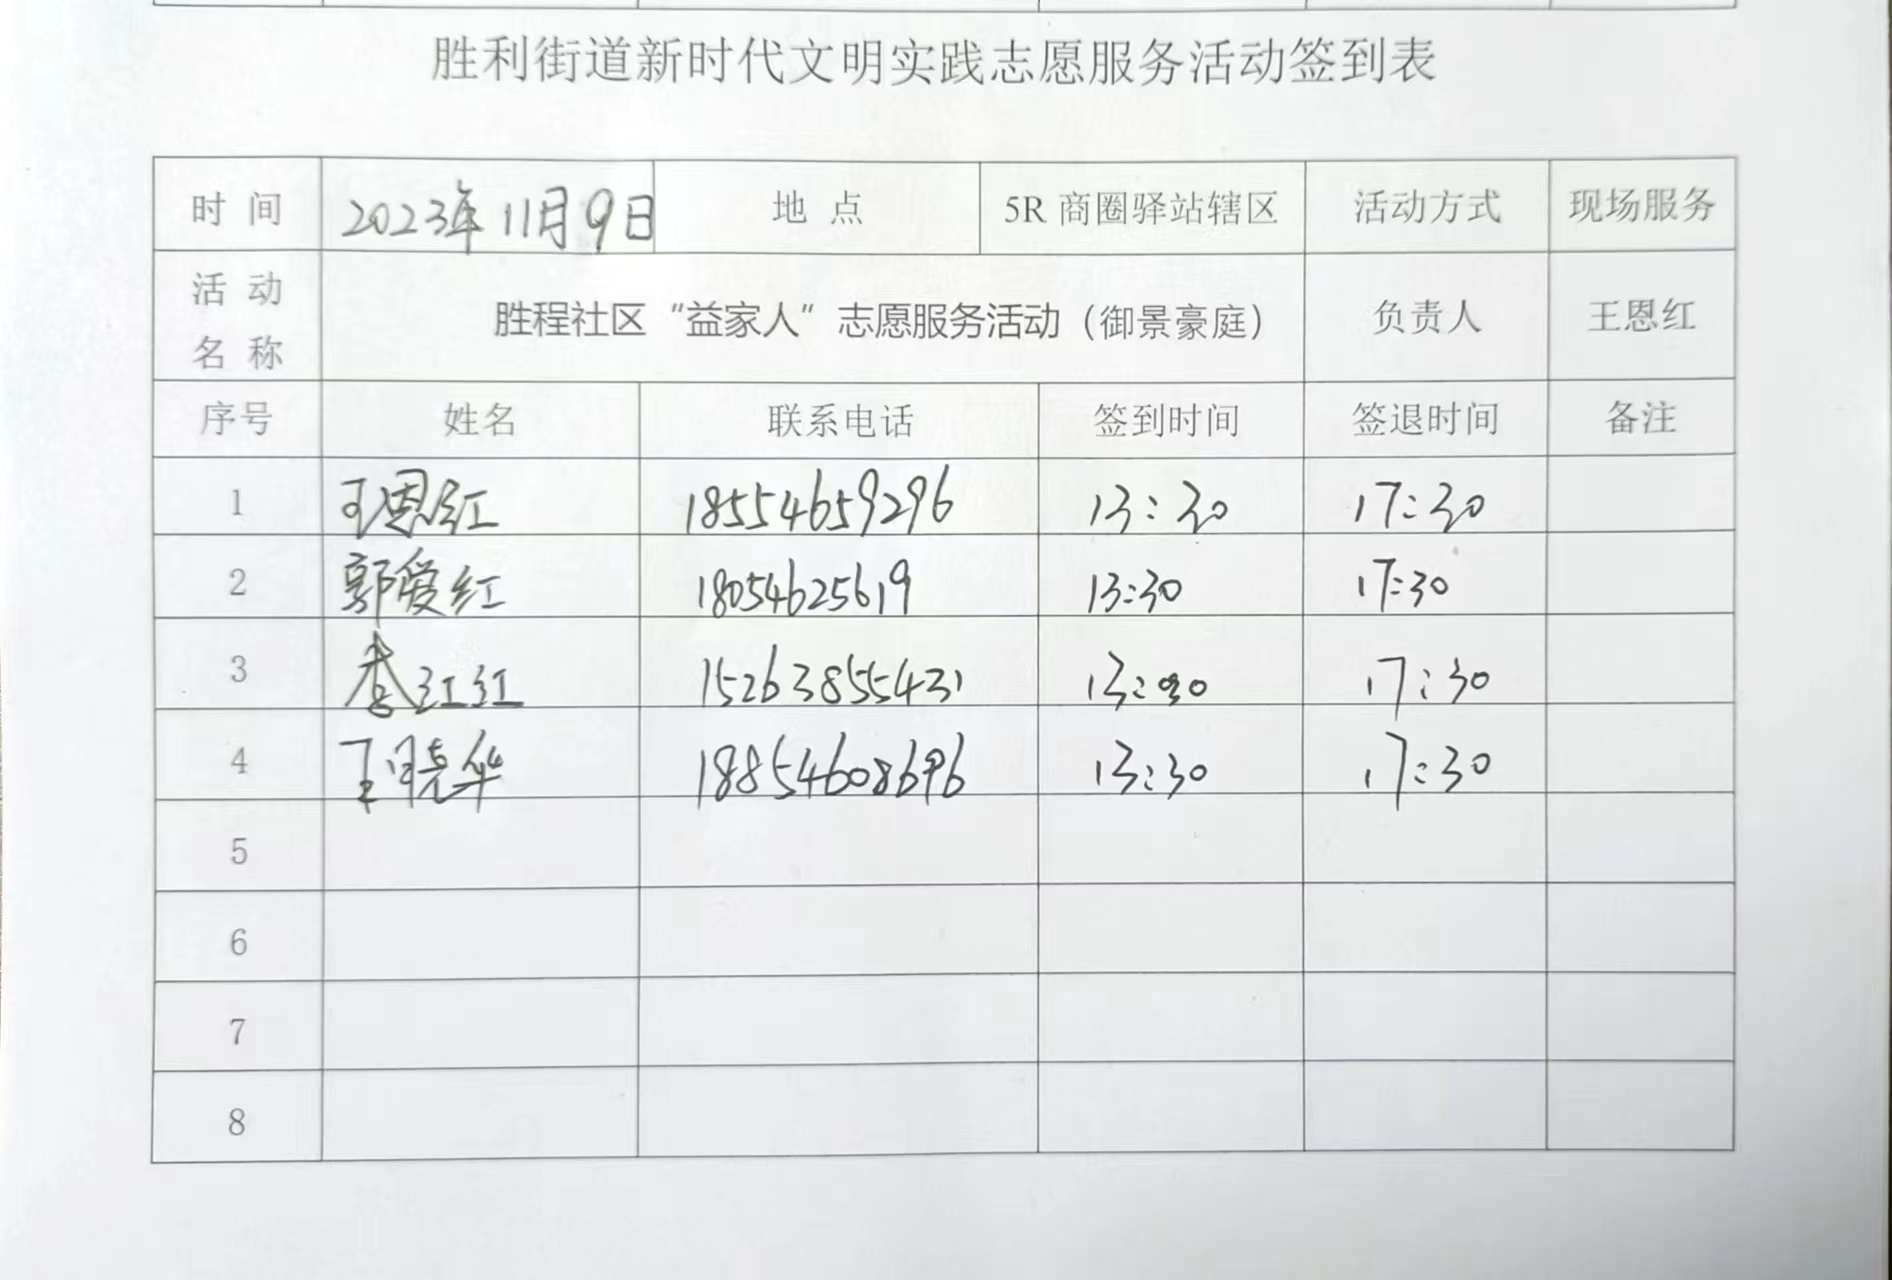 胜利街道新时代文明实践志愿服务活动签到表
时 间 2023年11月9日 地 点 5R 商圈驿站辖区 活动方式 现场服务
活 动 名 称 胜程社区“益家人”志愿服务活动（御景豪庭） 负责人 王恩红
序号 姓名 联系电话 签到时间 签退时间 备注
1 王恩红 18554659296 13:30 17:30
2 郭爱红 18054625619 13:30 17:30
3 李红红 15263855431 13:30 17:30
4 王晓华 18854608696 13:30 17:30
5
6
7
8